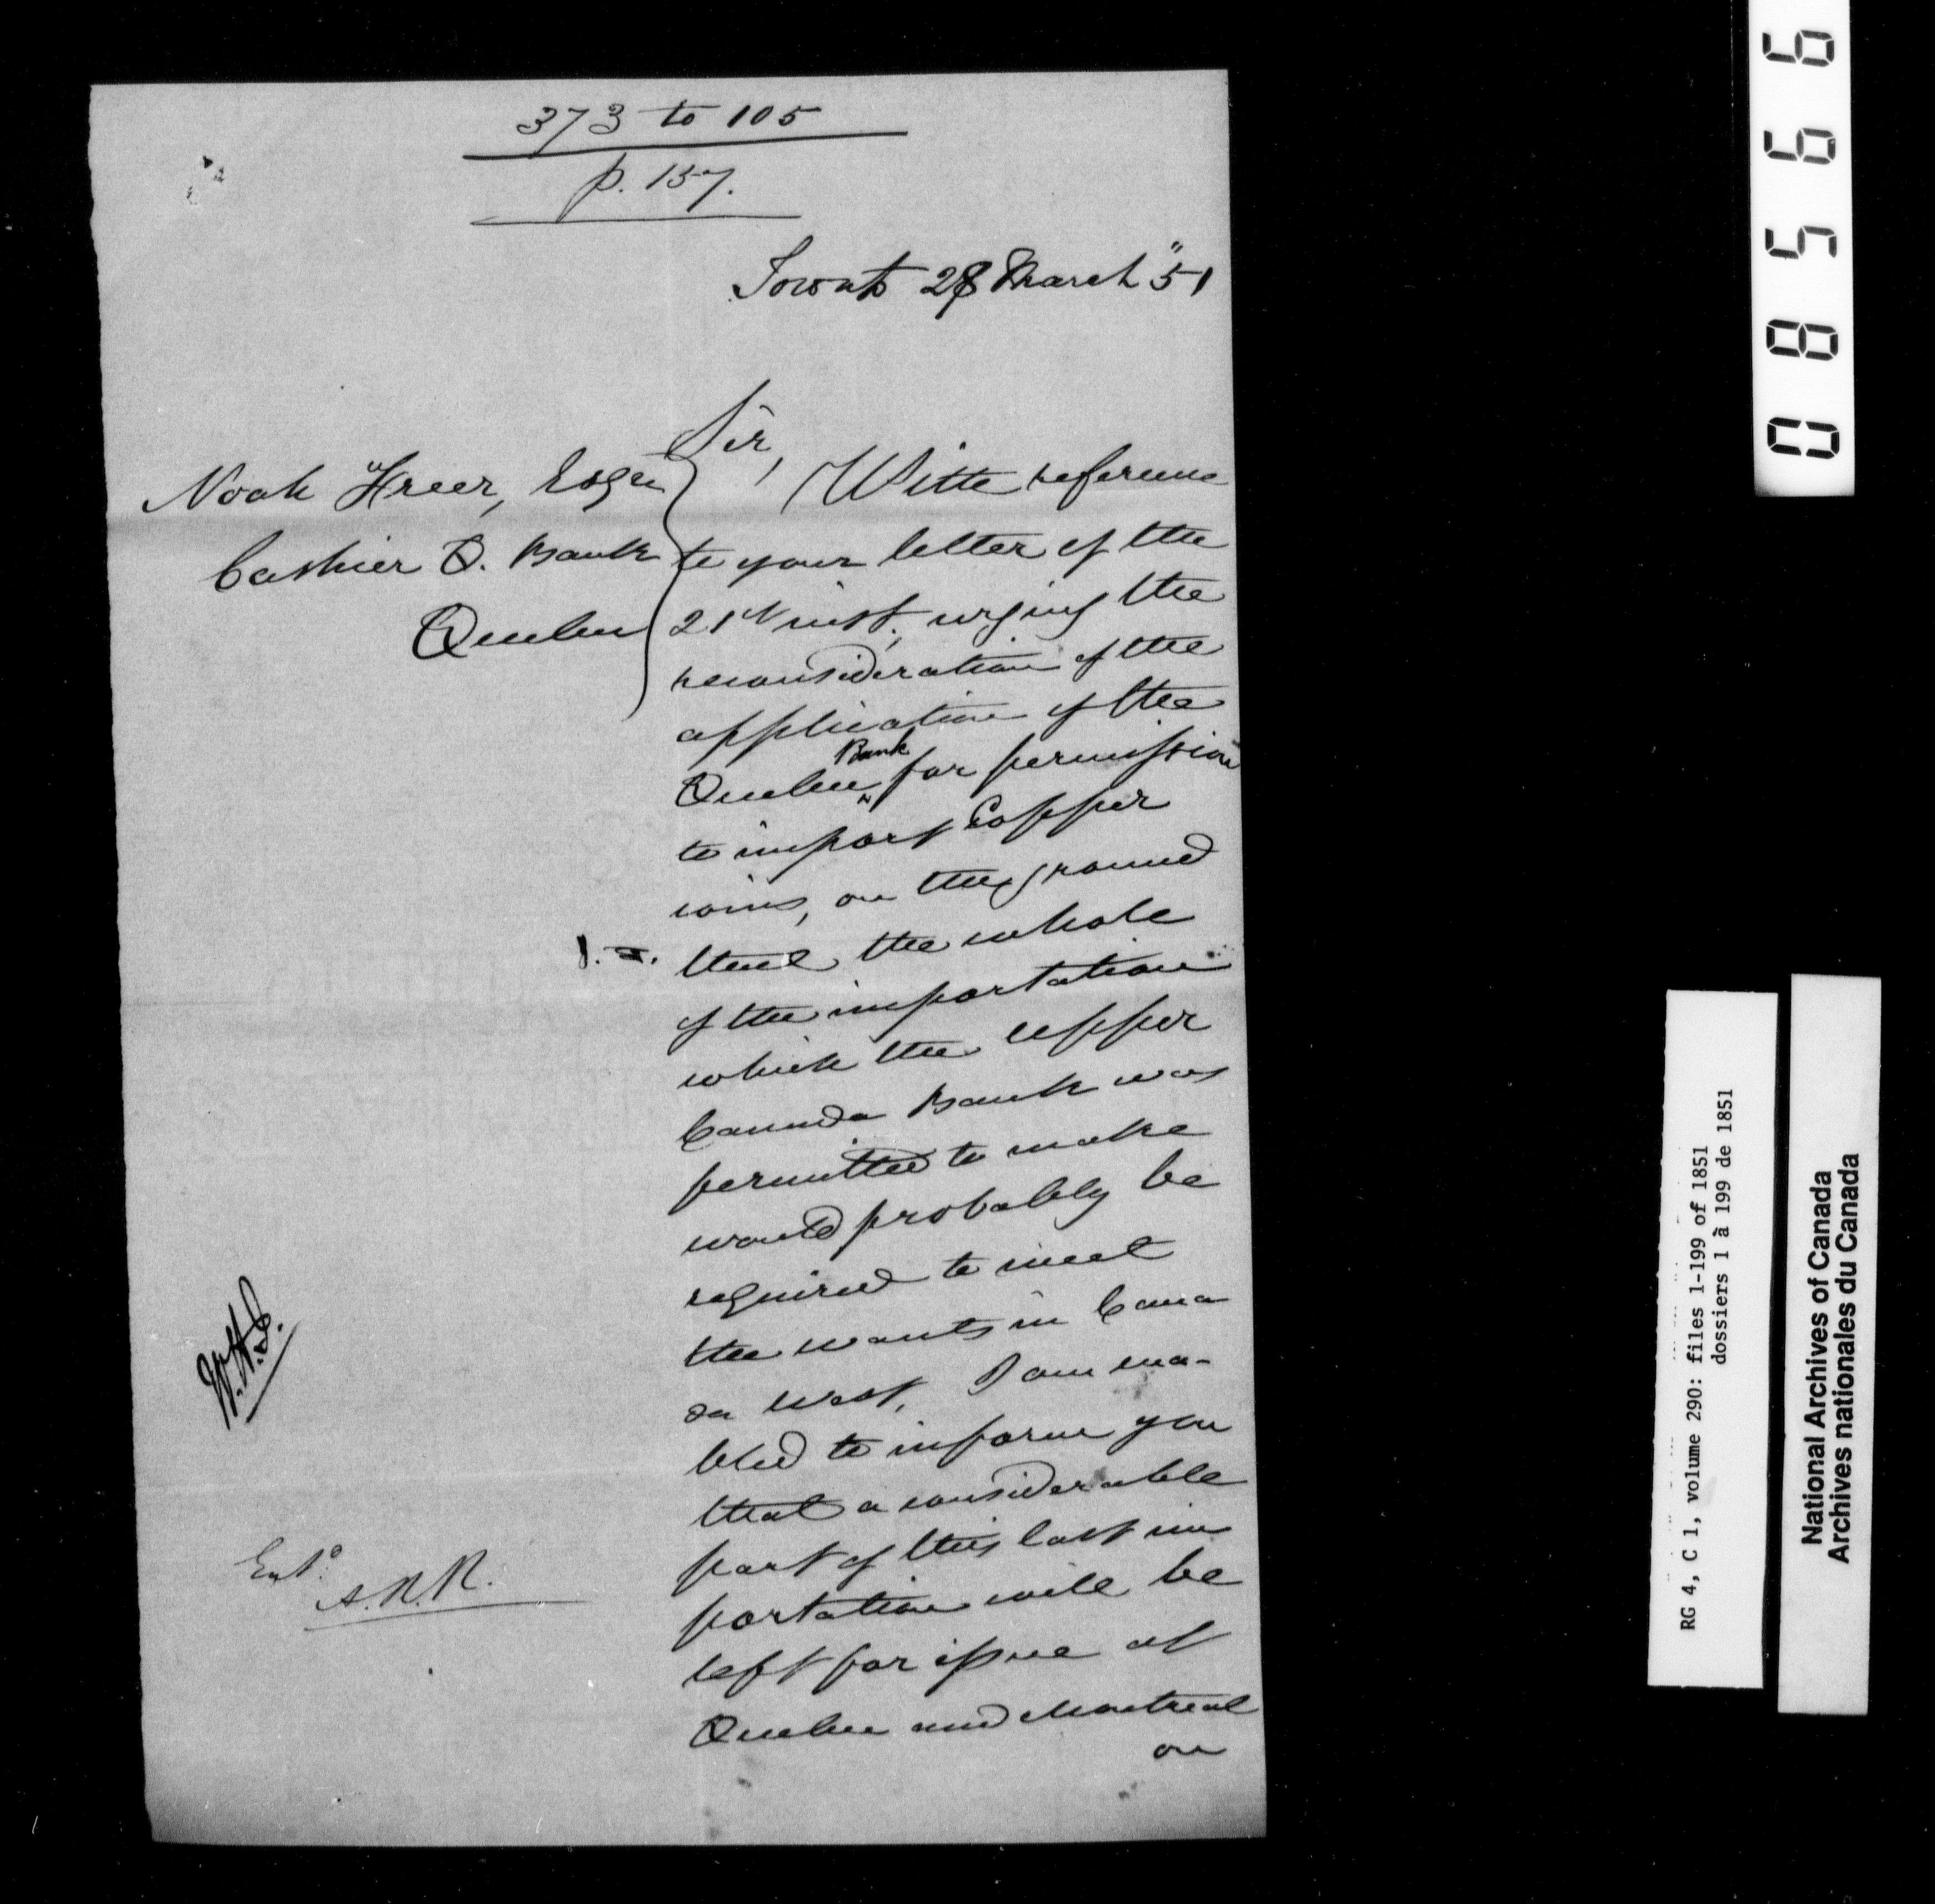 373 to 105
p. 157.
Toronto 28 March "51
Sir,
Noah Freer, Esqre
Cashier Q. Bank
Quebec
With reference
to your letter of the
21st inst, urging the
reconsideration of the
application of the
Quebec Bank for permission
to import Copper
coins, on the ground
that the whole
of the importation
which the upper
Canada Bank was
permitted to make
would probably be
required to meet
the wants in Cana
da West, I am ena-
bled to inform you
that a considerable
part of this last im
portation will be
left for issue at
Quebec and Montreal
on
W.H.L.
Entd.
A.R.R.
08566
RG 4, C 1, volume 290: files 1-199 of 1851
dossiers 1 à 199 de 1851
National Archives of Canada
Archives nationales du Canada